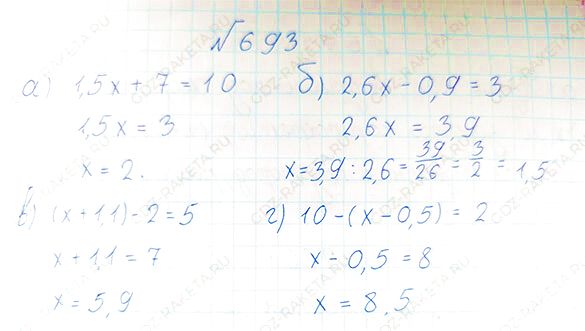 №693
а) 1,5x + 7 = 10
1,5x = 3
x = 2.
б) 2,6x - 0,9 = 3
2,6x = 3,9
x = 3,9 : 2,6 = 39/26 = 3/2 = 1,5
в) (x + 1,1) - 2 = 5
x + 1,1 = 7
x = 5,9
г) 10 - (x - 0,5) = 2
x - 0,5 = 8
x = 8,5
GDZ-RAKETA.RU